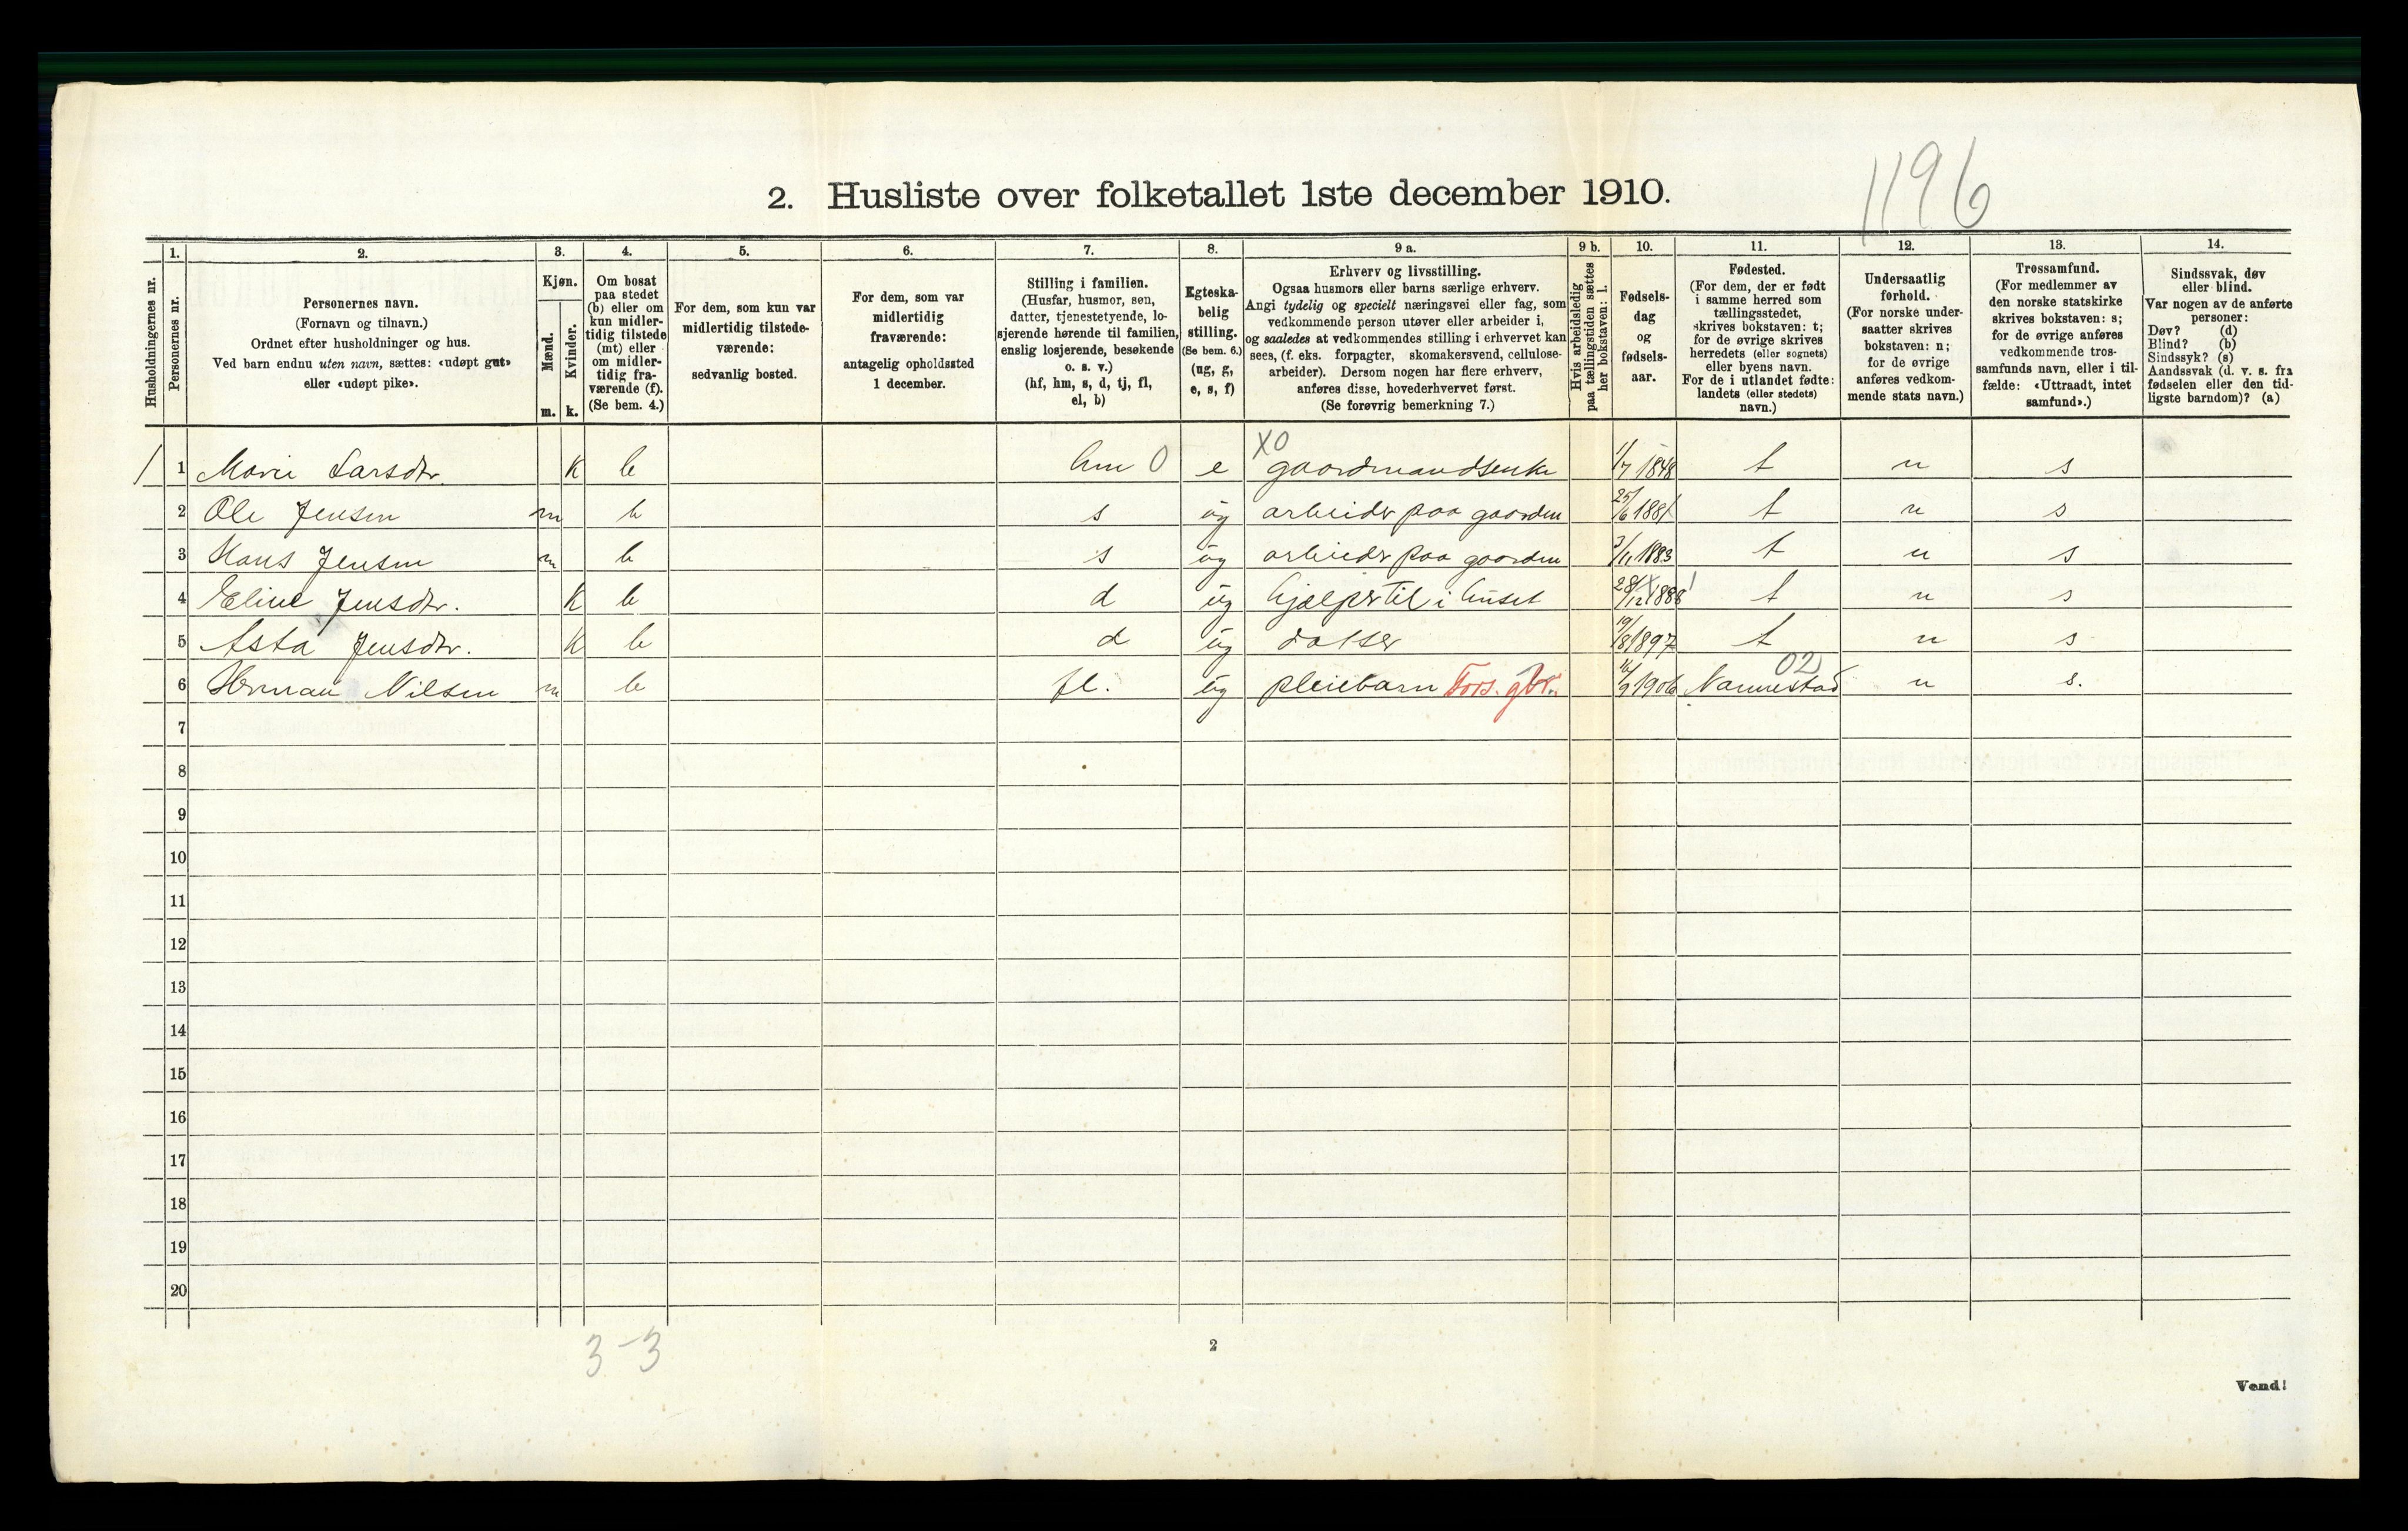 1196
2. Husliste over folketallet 1ste december 1910.
Husholdningernes nr.
1. Personernes nr.
2. Personernes navn.
(Fornavn og tilnavn.)
Ordnet efter husholdninger og hus.
Ved barn endnu uten navn, sættes: «udøpt gut»
eller «udøpt pike».
3. Kjøn.
Mænd. m.
Kvinder. k.
4. Om bosat
paa stedet
(b) eller om
kun midler-
tidig tilstede
(mt) eller
om midler-
tidig fra-
værende (f).
(Se bem. 4.)
5. For dem, som kun var
midlertidig tilstede-
værende:
sedvanlig bosted.
6. For dem, som var
midlertidig
fraværende:
antagelig opholdssted
1 december.
7. Stilling i familien.
(Husfar, husmor, søn,
datter, tjenestetyende, lo-
sjerende hørende til familien,
enslig losjerende, besøkende
o. s. v.)
(hf, hm, s, d, tj, fl,
el, b)
8. Egteska-
belig
stilling.
(Se bem. 6.)
(ug, g,
e, s, f)
9 a. Erhverv og livsstilling.
Ogsaa husmors eller barns særlige erhverv.
Angi tydelig og specielt næringsvei eller fag, som
vedkommende person utøver eller arbeider i,
og saaledes at vedkommendes stilling i erhvervet kan
sees, (f. eks. forpagter, skomakersvend, cellulose-
arbeider). Dersom nogen har flere erhverv,
anføres disse, hovederhvervet først.
(Se forøvrig bemerkning 7.)
9 b. Hvis arbeidsledig
paa tællingstiden sættes
her bokstaven: l.
10. Fødsels-
dag
og
fødsels-
aar.
11. Fødested.
(For dem, der er født
i samme herred som
tællingsstedet,
skrives bokstaven: t;
for de øvrige skrives
herredets (eller sognets)
eller byens navn.
For de i utlandet fødte:
landets (eller stedets)
navn.)
12. Undersaatlig
forhold.
(For norske under-
saatter skrives
bokstaven: n;
for de øvrige
anføres vedkom-
mende stats navn.)
13. Trossamfund.
(For medlemmer av
den norske statskirke
skrives bokstaven: s;
for de øvrige anføres
vedkommende tros-
samfunds navn, eller i til-
fælde: «Uttraadt, intet
samfund».)
14. Sindssvak, døv
eller blind.
Var nogen av de anførte
personer:
Døv? (d)
Blind? (b)
Sindssyk? (s)
Aandssvak (d. v. s. fra
fødselen eller den tid-
ligste barndom)? (a)
1 1 Marie Larsdtr. K b hm 0 e X0 gaardmandsenke 1/7 1848 t n s
2 Ole Jensen m b s ug arbeider paa gaarden 25/6 1881 t n s
3 Hans Jensen m b s ug arbeider paa gaarden 3/11 1883 t n s
4 Eline Jensdtr. K b d ug hjælper til i huset 28/12 1888 t n s
5 Asta Jensdtr. K b d ug datter 19/8 1897 t n s
6 Herman Nilsen m b fl. ug pleiebarn Fors. gbr. 16/9 1906 02 Nannestad n s.
7
8
9
10
11
12
13
14
15
16
17
18
19
20
3-3
2
Vend!